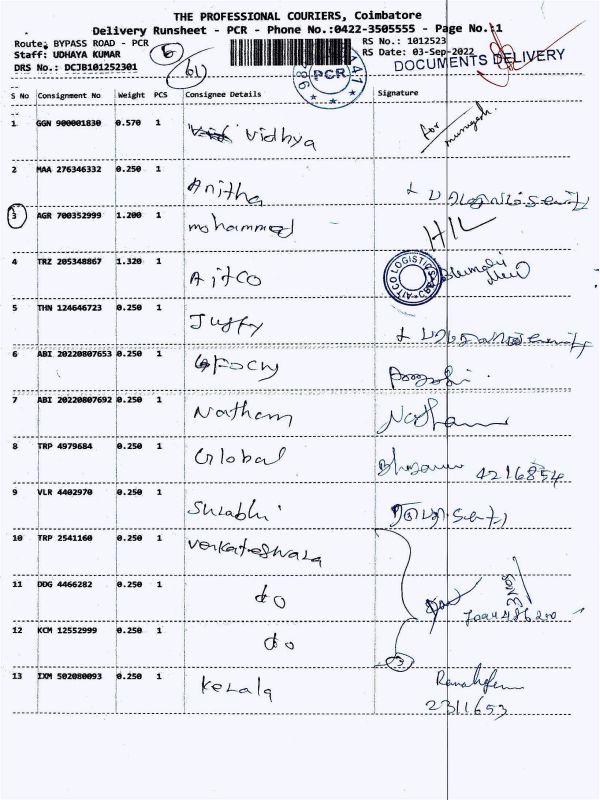 THE PROFESSIONAL COURIERS, Coimbatore
Delivery Runsheet - PCR - Phone No.:0422-3505555 - Page No.:1
Route: BYPASS ROAD - PCR
RS No.: 1012523
Staff: UDHAYA KUMAR
RS Date: 03-Sep-2022
DRS No.: DCJB101252301
61
PCR
DOCUMENTS DELIVERY
S No Consignment No Weight PCS Consignee Details Signature
1 GGN 900001830 0.570 1 Vidhya for
2 MAA 276346332 0.250 1 Anitha
3 AGR 700352999 1.200 1 mohammed H/L
4 TRZ 205348867 1.320 1 AitCo AITCO LOGISTICS
5 THN 124646723 0.250 1
6 ABI 20220807653 0.250 1
7 ABI 20220807692 0.250 1 Natham
8 TRP 4979684 0.250 1 Global 4216854
9 VLR 4402970 0.250 1
10 TRP 2541160 0.250 1 Venkateshwara
11 DDG 4466282 0.250 1 do
12 KCM 12552999 0.250 1 do
3
13 IXM 502080093 0.250 1 Kerala
2311653